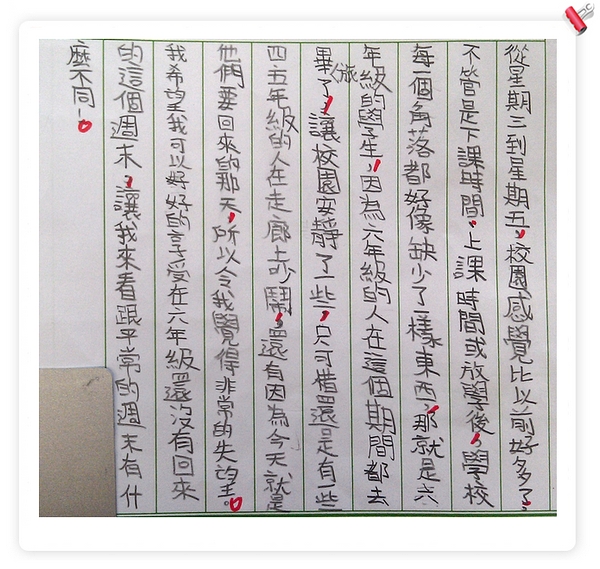 從星期三到星期五，校園感覺比以前好多了，
不管是下課時間、上課時間或放學後，學校
每一個角落都好像缺少了一樣東西，那就是六
年級的學生，因為六年級的人在這個期間都去
畢旅了，讓校園安靜了一些，只可惜還是有一些
四五年級的人在走廊上吵鬧，還有因為今天就是
他們要回來的那天，所以令我覺得非常的失望。
我希望我可以好好的享受在六年級還沒有回來
的這個週末，讓我來看跟平常的週末有什
麼不同！。